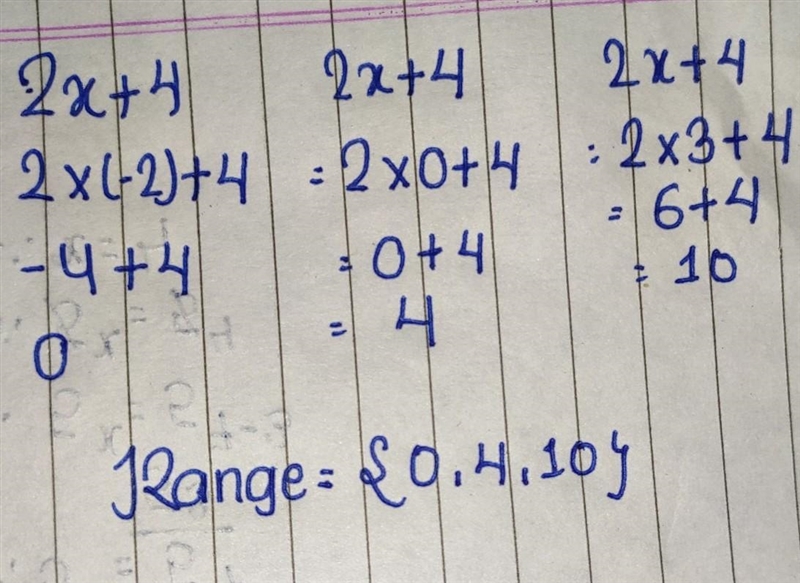 2x+4
2×(-2)+4
-4+4
0
2x+4
=2×0+4
=0+4
= 4
2x+4
:2×3+4
= 6+4
= 10
Range= {0.4.10}